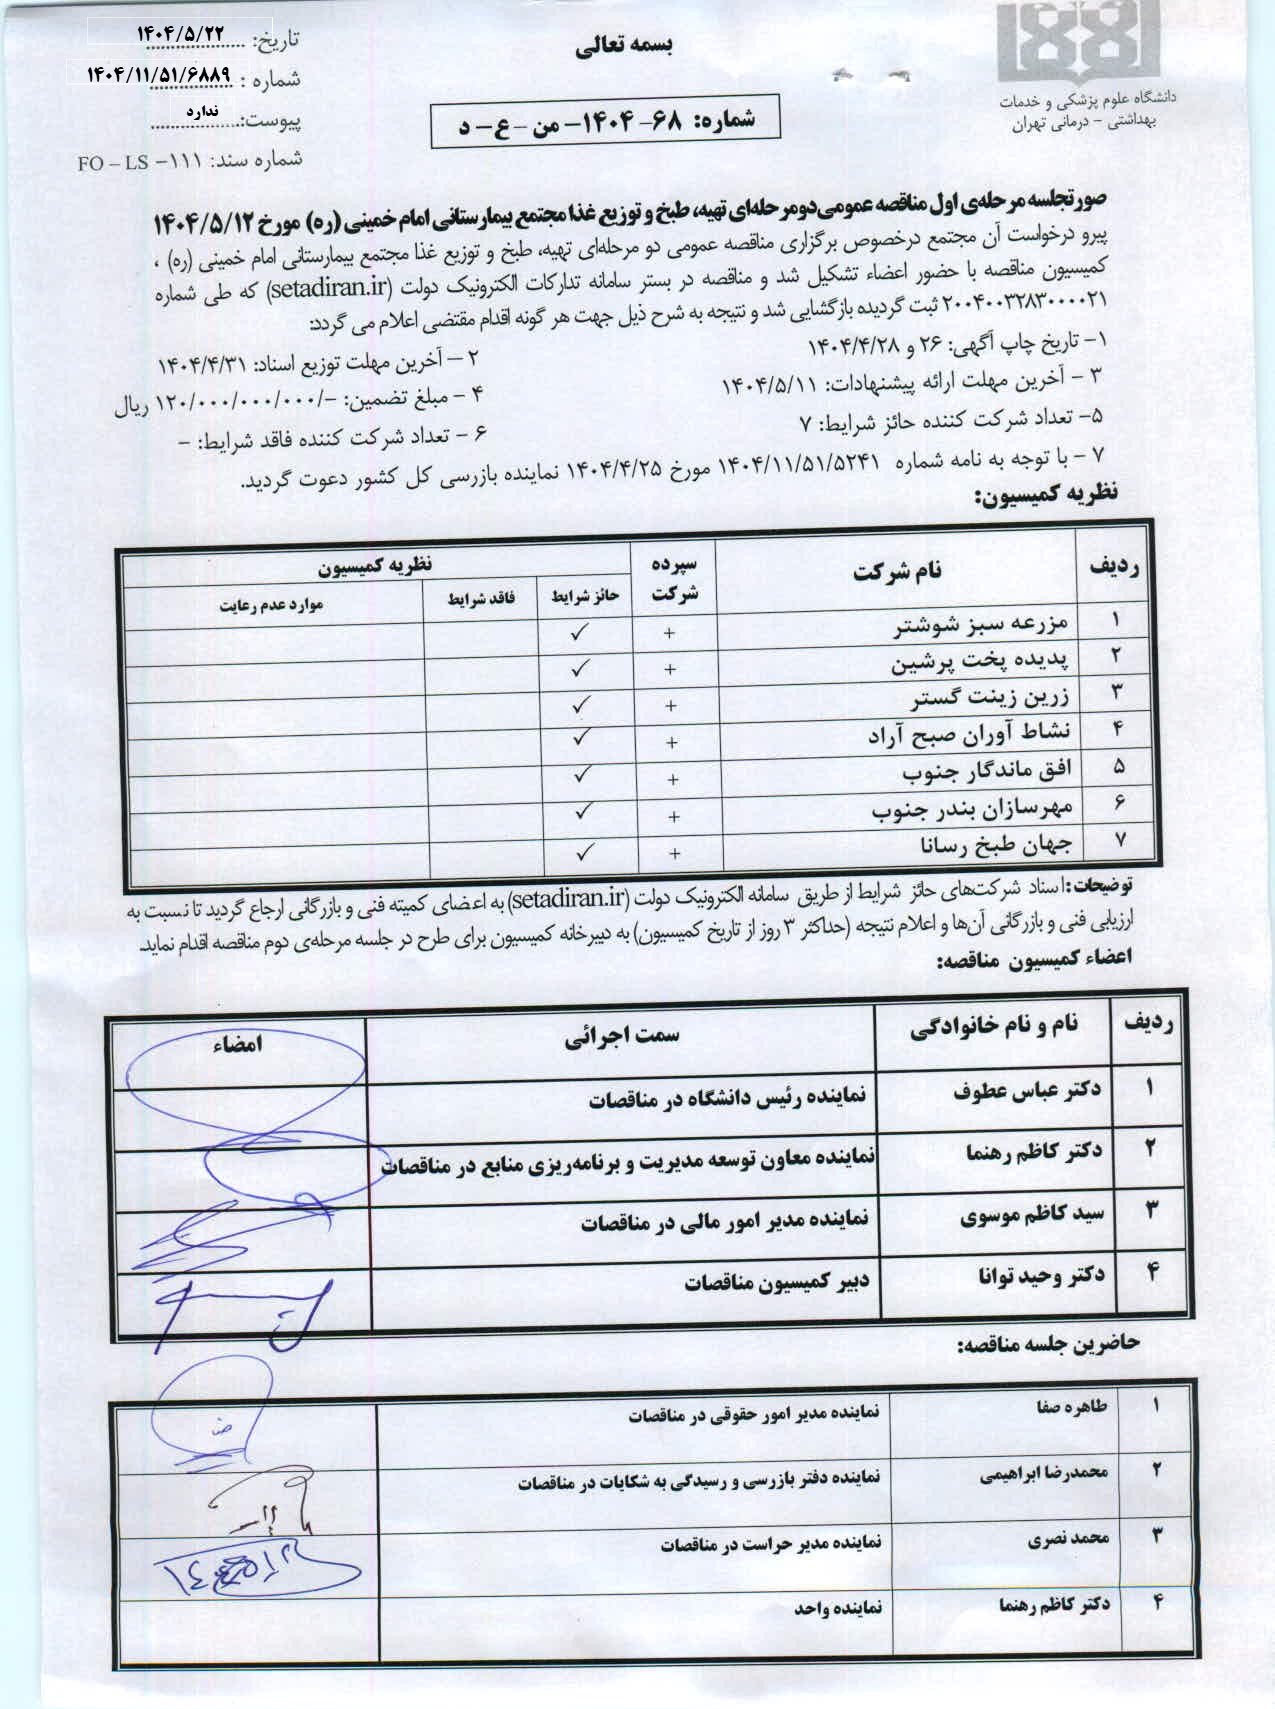 بسمه تعالی
تاریخ: ۱۴۰۴/۵/۲۲
شماره : ۱۴۰۴/۱۱/۵۱/۶۸۸۹
پیوست: ندارد
شماره سند: FO – LS –۱۱۱
دانشگاه علوم پزشکی و خدمات
بهداشتی – درمانی تهران
شماره: ۶۸- ۱۴۰۴- من - ع - د
صورتجلسه مرحله‌ی اول مناقصه عمومی دو مرحله‌ای تهیه، طبخ و توزیع غذا مجتمع بیمارستانی امام خمینی (ره) مورخ ۱۴۰۴/۵/۱۲
پیرو درخواست آن مجتمع درخصوص برگزاری مناقصه عمومی دو مرحله‌ای تهیه، طبخ و توزیع غذا مجتمع بیمارستانی امام خمینی (ره) ،
کمیسیون مناقصه با حضور اعضاء تشکیل شد و مناقصه در بستر سامانه تدارکات الکترونیک دولت (setadiran.ir) که طی شماره
۲۰۰۴۰۰۳۲۸۳۰۰۰۰۲۱ ثبت گردیده بازگشایی شد و نتیجه به شرح ذیل جهت هر گونه اقدام مقتضی اعلام می گردد:
۱- تاریخ چاپ آگهی: ۲۶ و ۱۴۰۴/۴/۲۸ ۲ – آخرین مهلت توزیع اسناد: ۱۴۰۴/۴/۳۱
۳ – آخرین مهلت ارائه پیشنهادات: ۱۴۰۴/۵/۱۱ ۴ – مبلغ تضمین: -/۱۲۰/۰۰۰/۰۰۰/۰۰۰ ریال
۵- تعداد شرکت کننده حائز شرایط: ۷ ۶ – تعداد شرکت کننده فاقد شرایط: -
۷ – با توجه به نامه شماره ۱۴۰۴/۱۱/۵۱/۵۲۴۱ مورخ ۱۴۰۴/۴/۲۵ نماینده بازرسی کل کشور دعوت گردید.
نظریه کمیسیون:
ردیف نام شرکت سپرده شرکت نظریه کمیسیون
حائز شرایط فاقد شرایط موارد عدم رعایت
۱ مزرعه سبز شوشتر + ✓
۲ پدیده پخت پرشین + ✓
۳ زرین زینت گستر + ✓
۴ نشاط آوران صبح آراد + ✓
۵ افق ماندگار جنوب + ✓
۶ مهرسازان بندر جنوب + ✓
۷ جهان طبخ رسانا + ✓
توضیحات: اسناد شرکت‌های حائز شرایط از طریق سامانه الکترونیک دولت (setadiran.ir) به اعضای کمیته فنی و بازرگانی ارجاع گردید تا نسبت به
ارزیابی فنی و بازرگانی آن‌ها و اعلام نتیجه (حداکثر ۳ روز از تاریخ کمیسیون) به دبیرخانه کمیسیون برای طرح در جلسه مرحله‌ی دوم مناقصه اقدام نماید.
اعضاء کمیسیون مناقصه:
ردیف نام و نام خانوادگی سمت اجرائی امضاء
۱ دکتر عباس عطوف نماینده رئیس دانشگاه در مناقصات
۲ دکتر کاظم رهنما نماینده معاون توسعه مدیریت و برنامه‌ریزی منابع در مناقصات
۳ سید کاظم موسوی نماینده مدیر امور مالی در مناقصات
۴ دکتر وحید توانا دبیر کمیسیون مناقصات
حاضرین جلسه مناقصه:
۱ طاهره صفا نماینده مدیر امور حقوقی در مناقصات
۲ محمدرضا ابراهیمی نماینده دفتر بازرسی و رسیدگی به شکایات در مناقصات
۳ محمد نصری نماینده مدیر حراست در مناقصات
۴ دکتر کاظم رهنما نماینده واحد